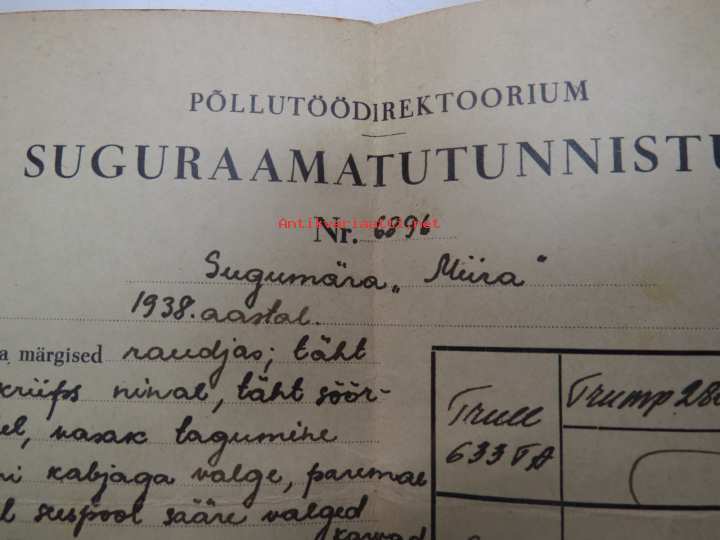 PÕLLUTÖÖDIREKTOORIUM
SUGURAAMATUTUNNISTU
Antikvariaatid.net
Nr. 6396
Sugumära „Miira"
1938. aastal.
a märgised raudjas; täht
kriips ninal, täht sõõr-
el, vasak tagumine
ni kabjaga valge, paremae
l seespool sääre valged
karvad
Trull
633 TA
Trump 28